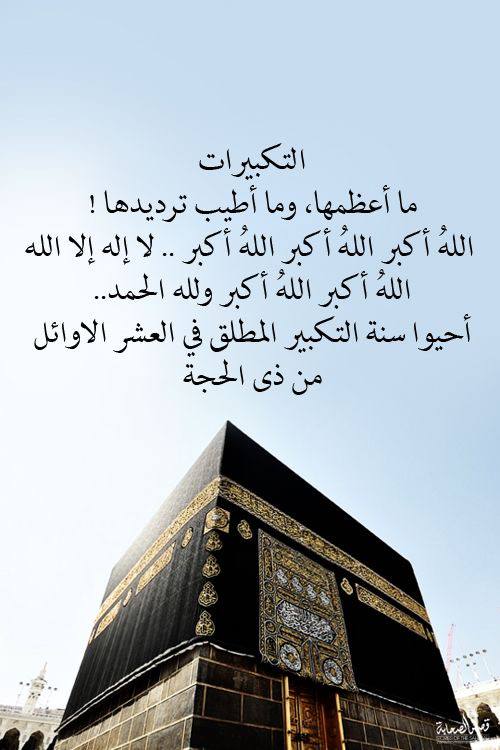 التكبيرات
ما أعظمها، وما أطيب ترديدها !
اللهُ أكبر اللهُ أكبر اللهُ أكبر .. لا إله إلا الله
اللهُ أكبر اللهُ أكبر ولله الحمد..
أحيوا سنة التكبير المطلق في العشر الاوائل
من ذى الحجة
قصص الصحابة